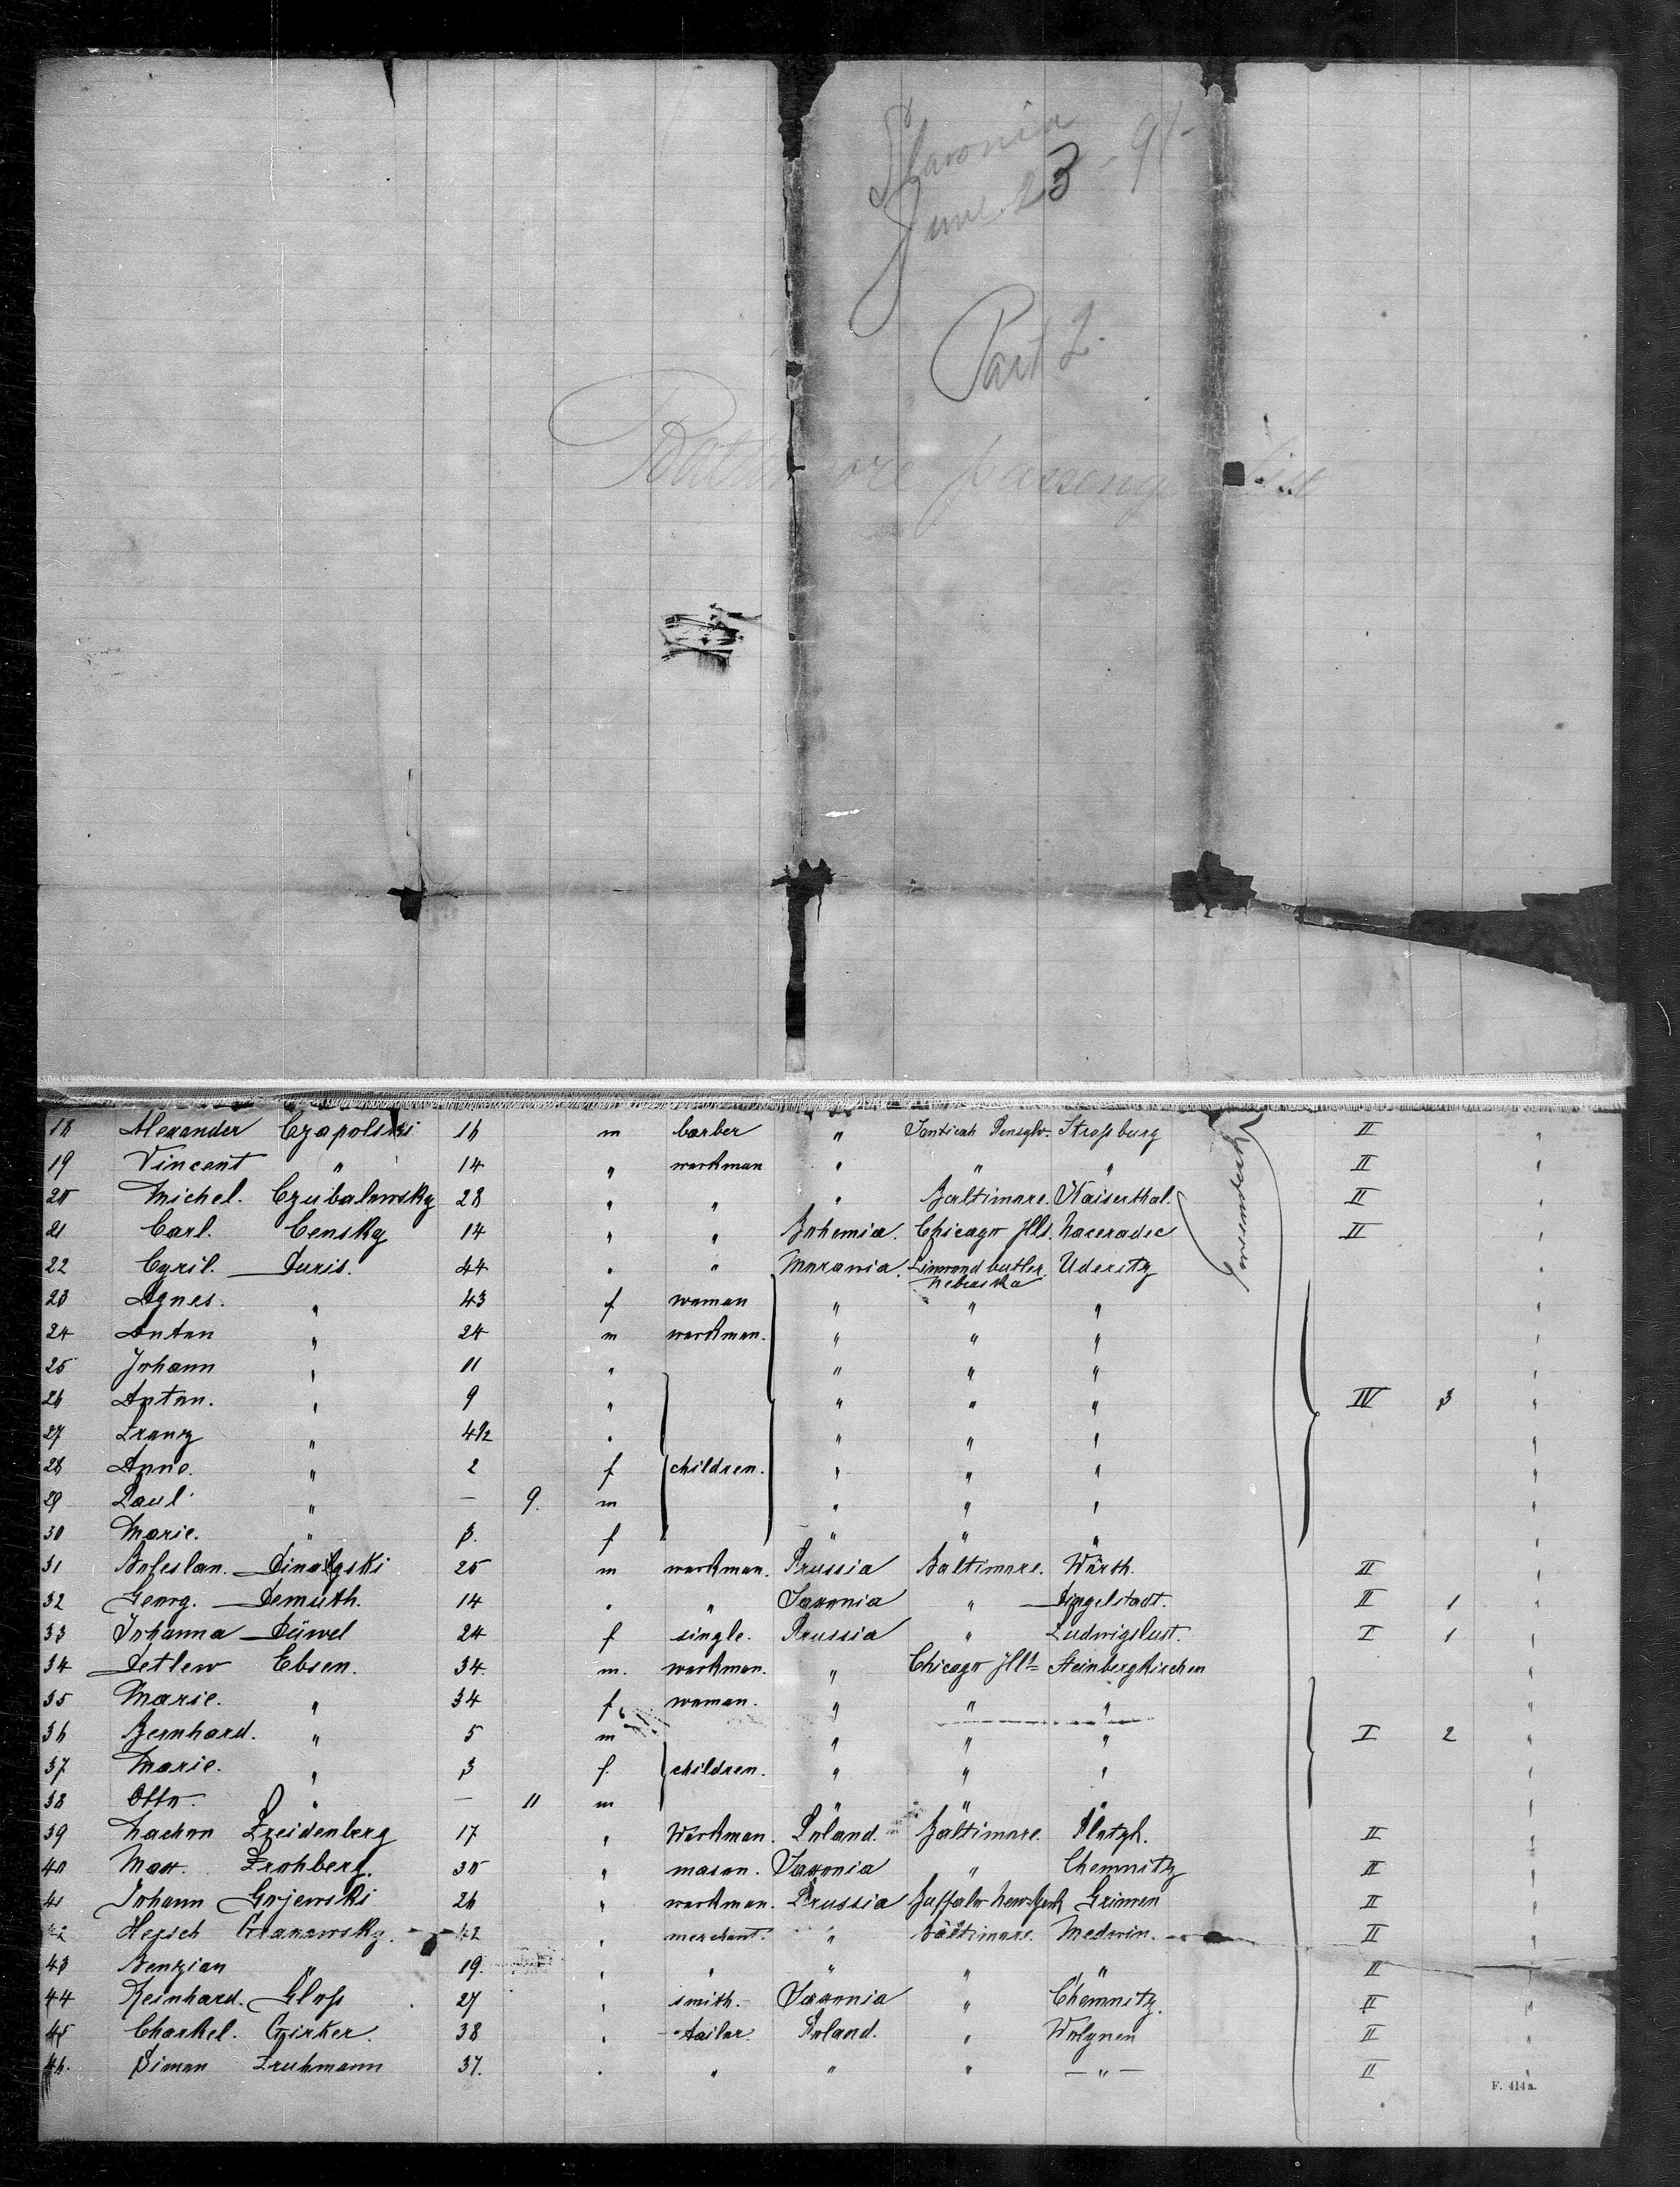 Slavonia
June 23 - 91-
Part 2.
Baltimore passeng list
18 Alexander Czapolski 16 m barber " Pensylv. Strassburg II "
19 Vincent " 14 " workman " " " II "
20 Michel. Czubalowsky 28 " " " Baltimore. Kaiserthal. II "
21 Carl. Censky 14 " " Bohemia. Chicago Ills. Naceradec II "
22 Cyril. Duris. 44 " " Moravia. butler. Uderitz "
Nebraska
23 Agnes. " 43 f woman " " " "
24 Anton " 24 m workman. " " " "
25 Johann " 11 " " " " "
26 Anton. " 9 " " " " IV 3 "
27 Franz " 4 1/2 " " " " "
28 Anna. " 2 f children. " " " "
29 Paul " — 9. m " " " "
30 Marie. " 3. f " " " "
31 Boleslan. 25 m workman. Prussia Baltimore. Wörth. II "
32 Georg. Demuth. 14 " " Saxonia " Dingelstadt. II 1 "
33 Johanna Düwel 24 f single. Prussia " Ludwigslust. I 1 "
34 Detlew Ebsen. 34 m. workman. " Chicago Ills Steinbergkirchen "
35 Marie. " 34 f woman. " " " "
36 Bernhard. " 5 m " " " I 2 "
37 Marie. " 3 f. children. " " " "
38 Otto. " — 11 m " " " "
39 Nachm Freidenberg 17 " Workman. Poland. Baltimore. Plotzk. II "
40 Max. Frohberg. 30 " mason. Saxonia " Chemnitz II "
41 Johann Gojewski 26 " workman. Prussia Buffalo New York Grimen II "
42 Hersch Glanowsky. 42 " merchant. " Baltimore. Medwin. II "
43 Benzian " 19. " " " " " II "
44 Reinhard. Gloss 27 " smith. Saxonia " Chemnitz. II "
45 Charkel. Girker. 38 " tailor. Poland. " Wolynen II "
46. Simon Fruhmann 37. " " " " — " — II "
F. 414 a.